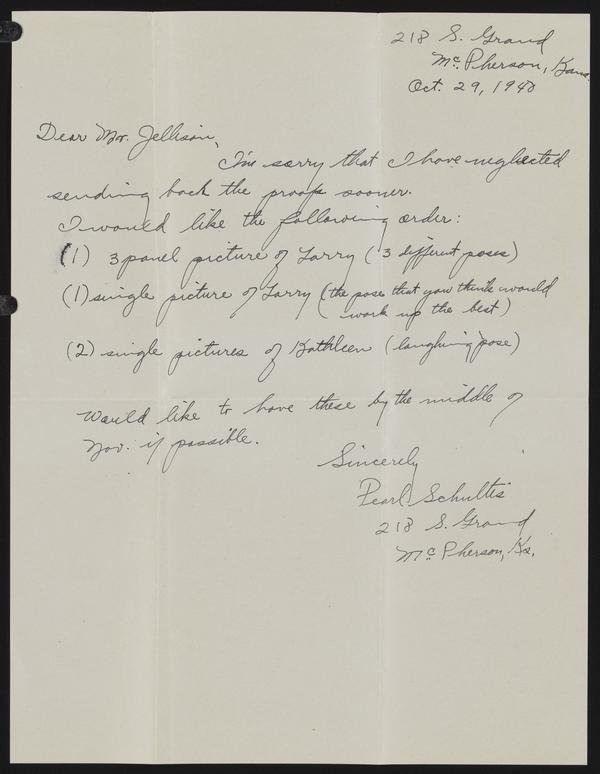 218 S. Grand
McPherson, Kans.
Oct. 29, 1940
Dear Mr. Jellison,
I'm sorry that I have neglected
sending back the proofs sooner.
I would like the following order:
(1) 3 panel picture of Larry (3 different poses)
(1) single picture of Larry (the pose that you think would
work up the best)
(2) single pictures of Kathleen (laughing pose)
Would like to have these by the middle of
Nov. if possible.
Sincerely
Pearl Schultis
218 S. Grand
McPherson, Ks.